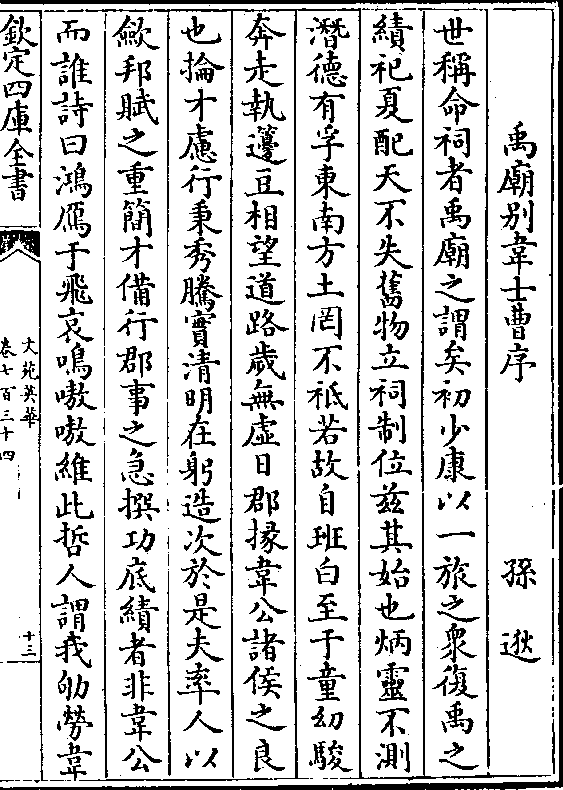 禹廟别韋士曹序
孫逖
世稱命祠者禹廟之謂矣初少康以一旅之衆復禹之
績祀夏配天不失舊物立祠制位兹其始也炳靈不測
潛德有孚東南方土罔不祇若故自班白至于童幼駿
奔走執籩豆相望道路歲無虚日郡掾韋公諸侯之良
也掄才慮行秉秀騰實清明在躬造次於是夫率人以
斂邦賦之重簡才備行郡事之急撰功底績者非韋公
而誰詩曰鴻鴈于飛哀鳴嗷嗷維此哲人謂我劬勞韋
欽定四庫全書
文苑英華
卷七百三十四
十三